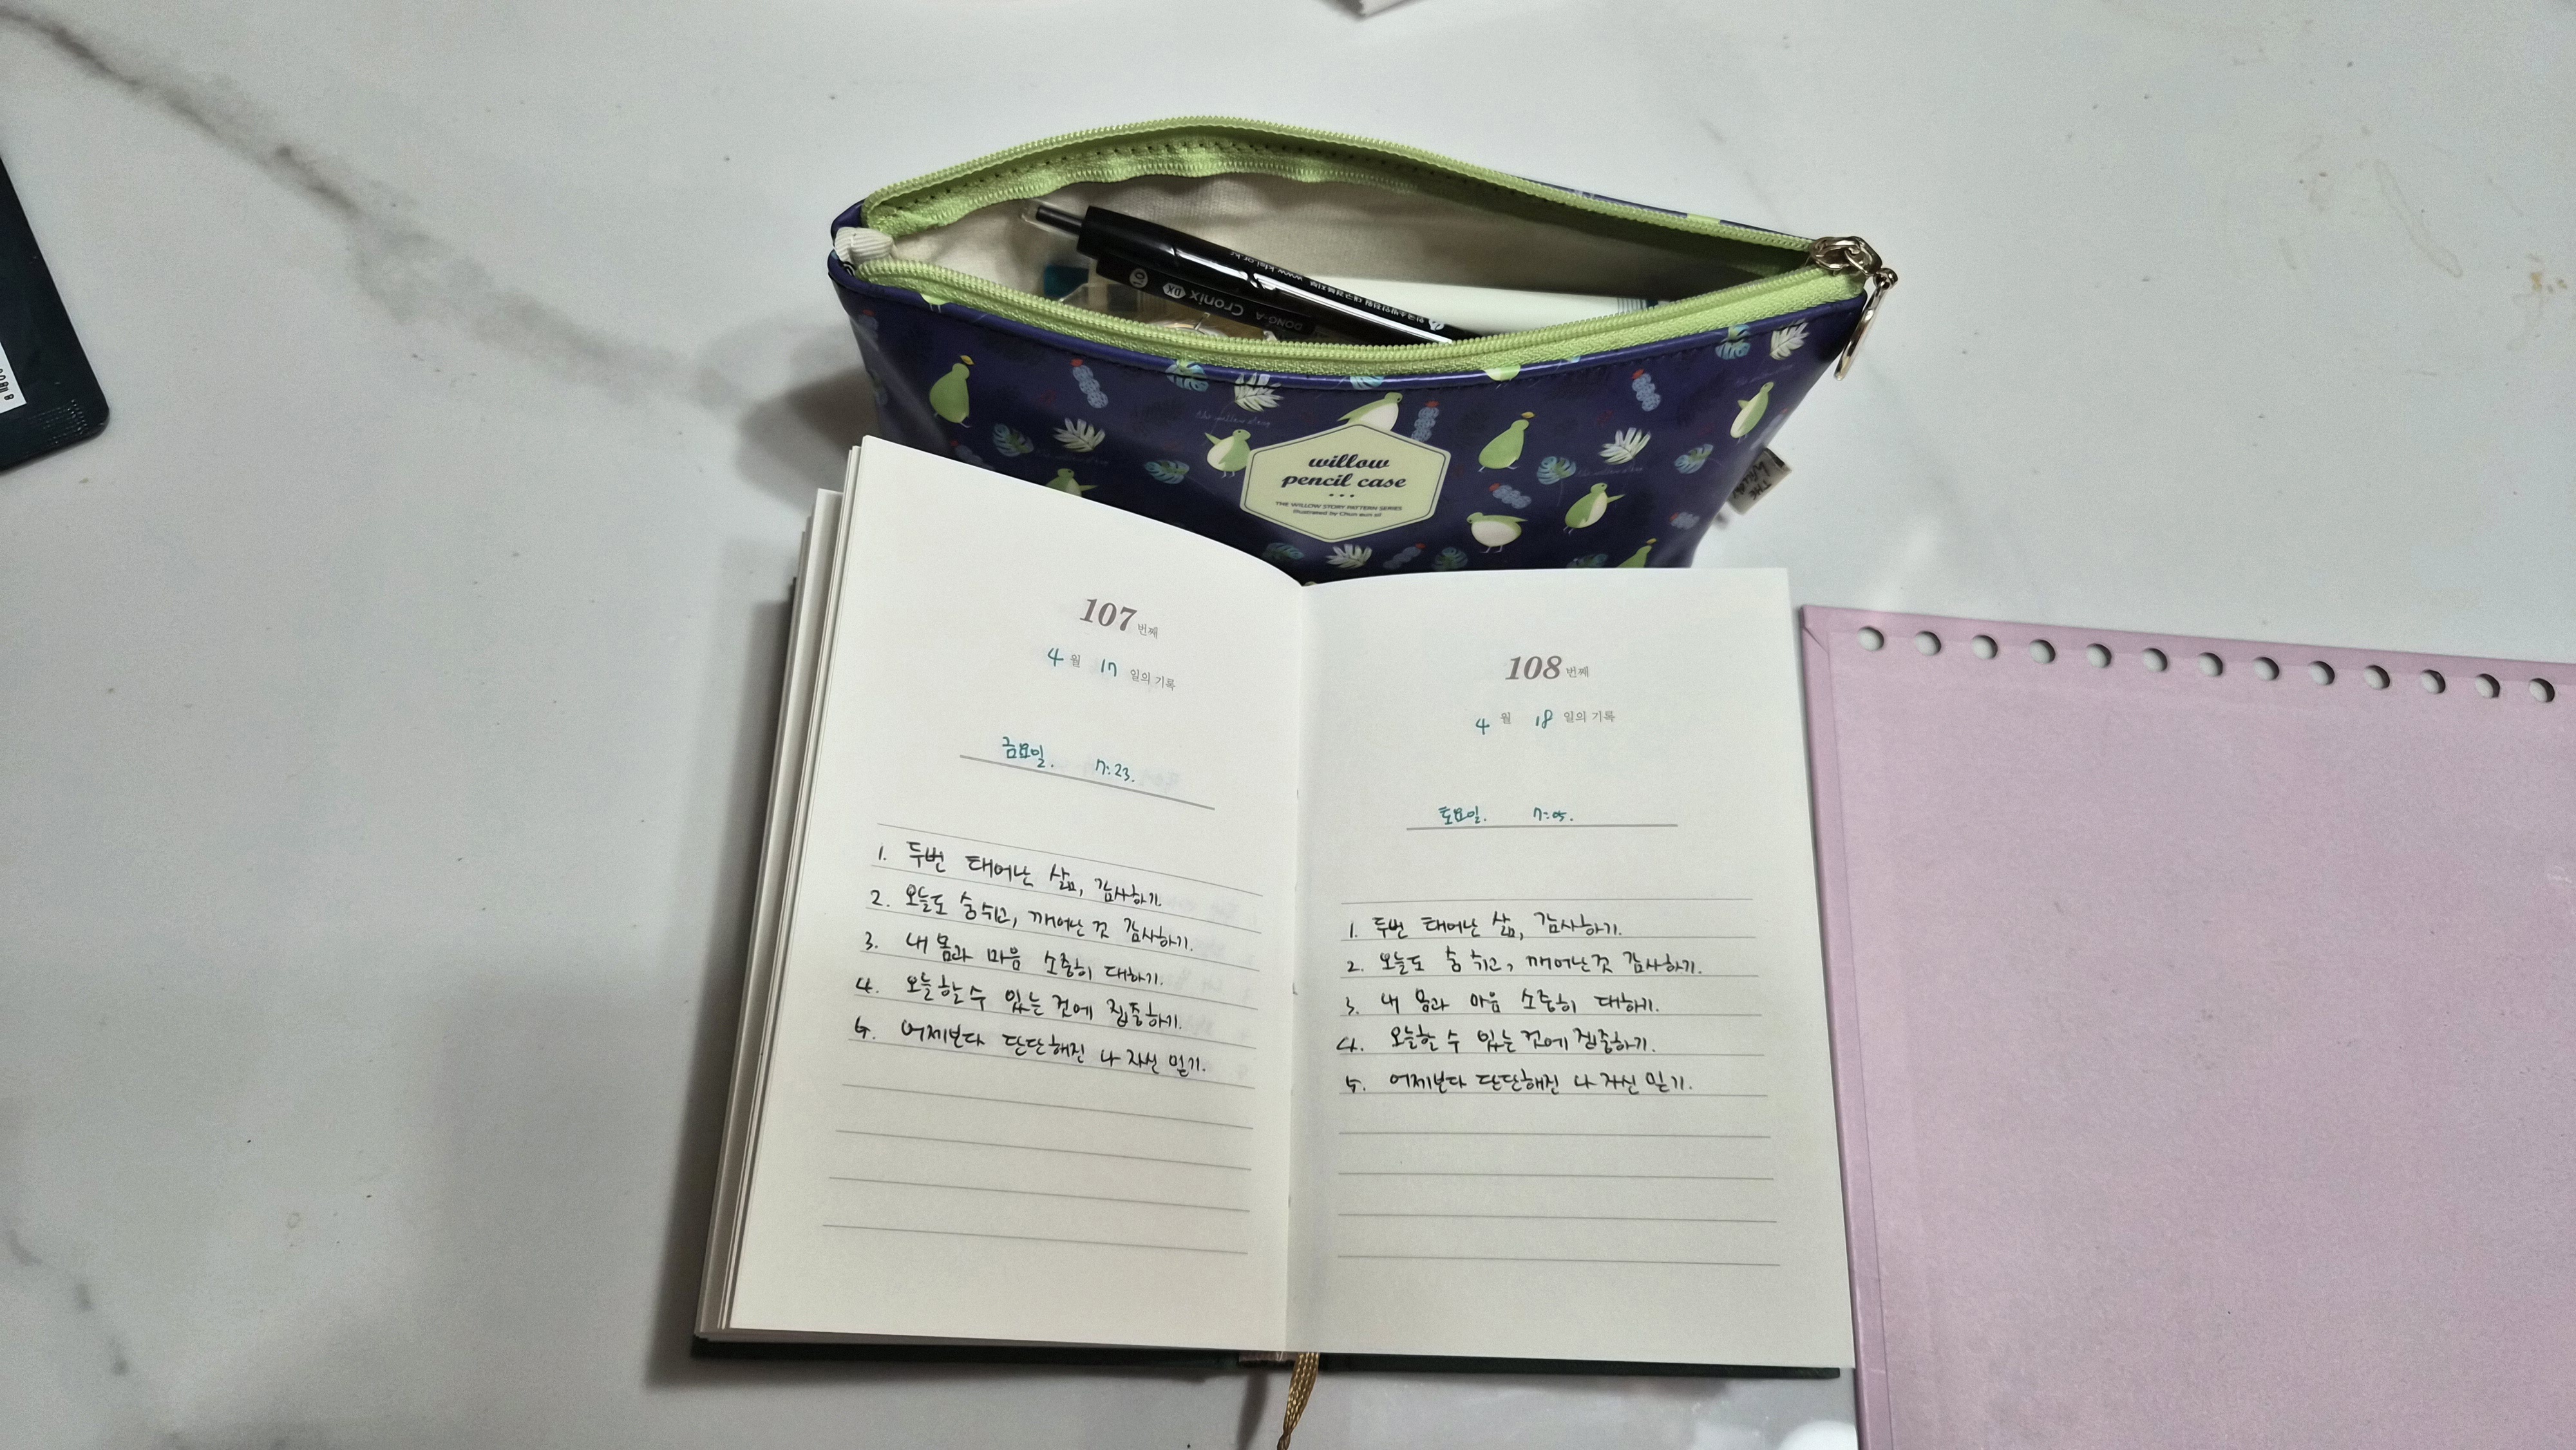 DONG-A Cronix DX
www.ktei.or.kr
willow
pencil case
THE WILLOW STORY PATTERN SERIES
Illustrated by Chun eun sil
THE
107 번째
4 월 17 일의 기록
금요일. 7:23.
1. 두번 태어난 삶, 감사하기.
2. 오늘도 숨쉬고, 깨어난 것 감사하기.
3. 내 몸과 마음 소중히 대하기.
4. 오늘 할 수 있는 것에 집중하기.
5. 어제보다 단단해진 나 자신 믿기.
108 번째
4 월 18 일의 기록
토요일. 7:05.
1. 두번 태어난 삶, 감사하기.
2. 오늘도 숨 쉬고, 깨어난 것 감사하기.
3. 내 몸과 마음 소중히 대하기.
4. 오늘 할 수 있는 것에 집중하기.
5. 어제보다 단단해진 나 자신 믿기.